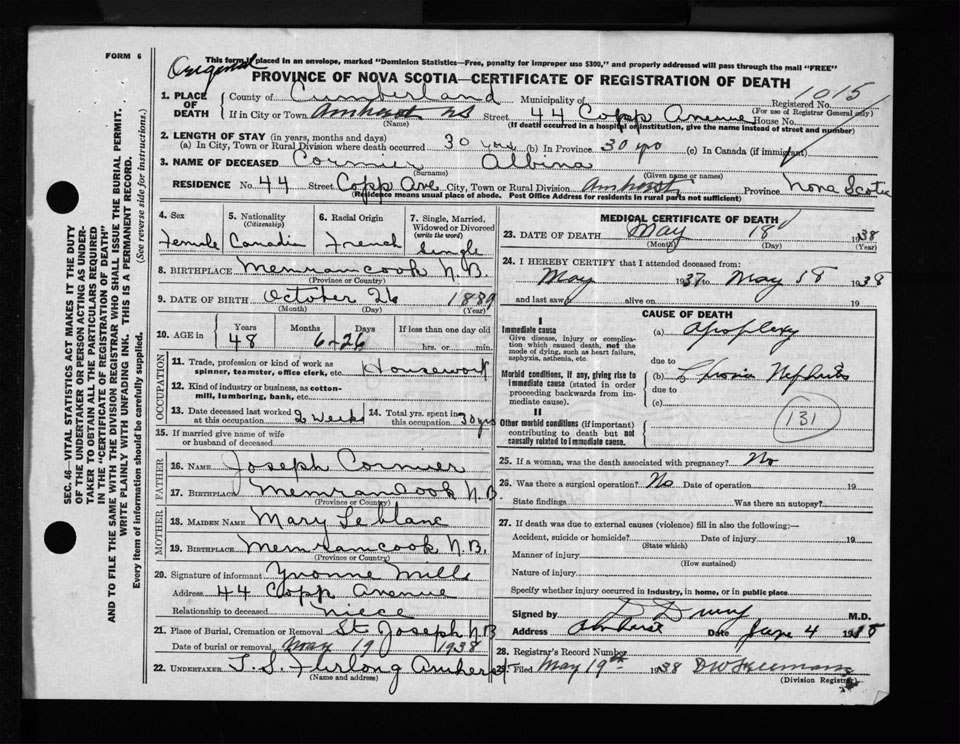 FORM 6
This form if placed in an envelope, marked "Dominion Statistics—Free, penalty for improper use $300," and properly addressed will pass through the mail "FREE"
Original
PROVINCE OF NOVA SCOTIA—CERTIFICATE OF REGISTRATION OF DEATH
1015
Registered No.
(For use of Registrar General only)
1. PLACE OF DEATH
County of Cumberland Municipality of
If in City or Town Amherst NS Street 44 Copp Avenue House No.
(Name) (If death occurred in a hospital or institution, give the name instead of street and number)
2. LENGTH OF STAY (in years, months and days)
(a) In City, Town or Rural Division where death occurred 30 yrs (b) In Province 30 yrs (c) In Canada (if immigrant)
3. NAME OF DECEASED Cormier Albina
(Surname) (Given name or names)
RESIDENCE No. 44 Street Copp Ave City, Town or Rural Division Amherst Province Nova Scotia
(Residence means usual place of abode. Post Office Address for residents in rural parts not sufficient)
4. Sex Female
5. Nationality (Citizenship) Canadin
6. Racial Origin French
7. Single, Married, Widowed or Divorced (write the word) Single
8. BIRTHPLACE Memramcook N.B.
(Province or Country)
9. DATE OF BIRTH October 26 1889
(Month) (Day) (Year)
10. AGE in Years 48 Months 6 Days 26 If less than one day old
hrs. or min.
OCCUPATION
11. Trade, profession or kind of work as spinner, teamster, office clerk, etc. Housework
12. Kind of industry or business, as cotton-mill, lumbering, bank, etc.
13. Date deceased last worked at this occupation 2 weeks
14. Total yrs. spent in this occupation 30 yrs
15. If married give name of wife or husband of deceased
FATHER
16. NAME Joseph Cormier
17. BIRTHPLACE Memramcook N.B.
(Province or Country)
MOTHER
18. MAIDEN NAME Mary Leblanc
19. BIRTHPLACE Memramcook N.B.
(Province or Country)
20. Signature of informant Yvonne Mills
Address 44 Copp Avenue
Relationship to deceased niece
21. Place of Burial, Cremation or Removal St. Joseph N.B
Date of burial or removal May 19 1938
22. UNDERTAKER Furlong Amherst
(Name and address)
MEDICAL CERTIFICATE OF DEATH
23. DATE OF DEATH May 18 1938
(Month) (Day) (Year)
24. I HEREBY CERTIFY that I attended deceased from:
May 1937 to May 18 1938
and last saw h alive on 19
CAUSE OF DEATH
I
Immediate cause (a) Apoplexy
Give disease, injury or complication which caused death, not the mode of dying, such as heart failure, asphyxia, asthenia, etc.
due to
Morbid conditions, if any, giving rise to immediate cause (stated in order proceeding backwards from immediate cause).
(b) Chronic Nephritis
due to
(c)
II
Other morbid conditions (if important) contributing to death but not causally related to immediate cause.
131
25. If a woman, was the death associated with pregnancy? No
26. Was there a surgical operation? No Date of operation 19
State findings Was there an autopsy?
27. If death was due to external causes (violence) fill in also the following:—
Accident, suicide or homicide? Date of injury 19
(State which)
Manner of injury
(How sustained)
Nature of injury
Specify whether injury occurred in industry, in home, or in public place
Signed by M.D.
Address Amherst Date June 4 19
28. Registrar's Record Number
29. Filed May 19th 1938
(Division Registrar)
SEC. 46—VITAL STATISTICS ACT MAKES IT THE DUTY
OF THE UNDERTAKER OR PERSON ACTING AS UNDER-
TAKER TO OBTAIN ALL THE PARTICULARS REQUIRED
IN THE "CERTIFICATE OF REGISTRATION OF DEATH"
AND TO FILE THE SAME WITH THE DIVISION REGISTRAR WHO SHALL ISSUE THE BURIAL PERMIT.
WRITE PLAINLY WITH UNFADING INK. THIS IS A PERMANENT RECORD.
Every item of information should be carefully supplied. (See reverse side for instructions.)